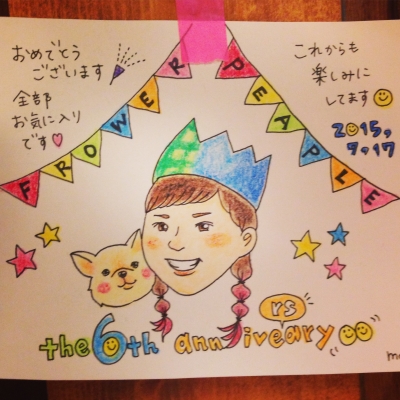 おめでとう
ございます
全部
お気に入り
です♡
これからも
楽しみに
してます
2015,
9,17
FROWER PEAPLE
rs
the 6th anniveary